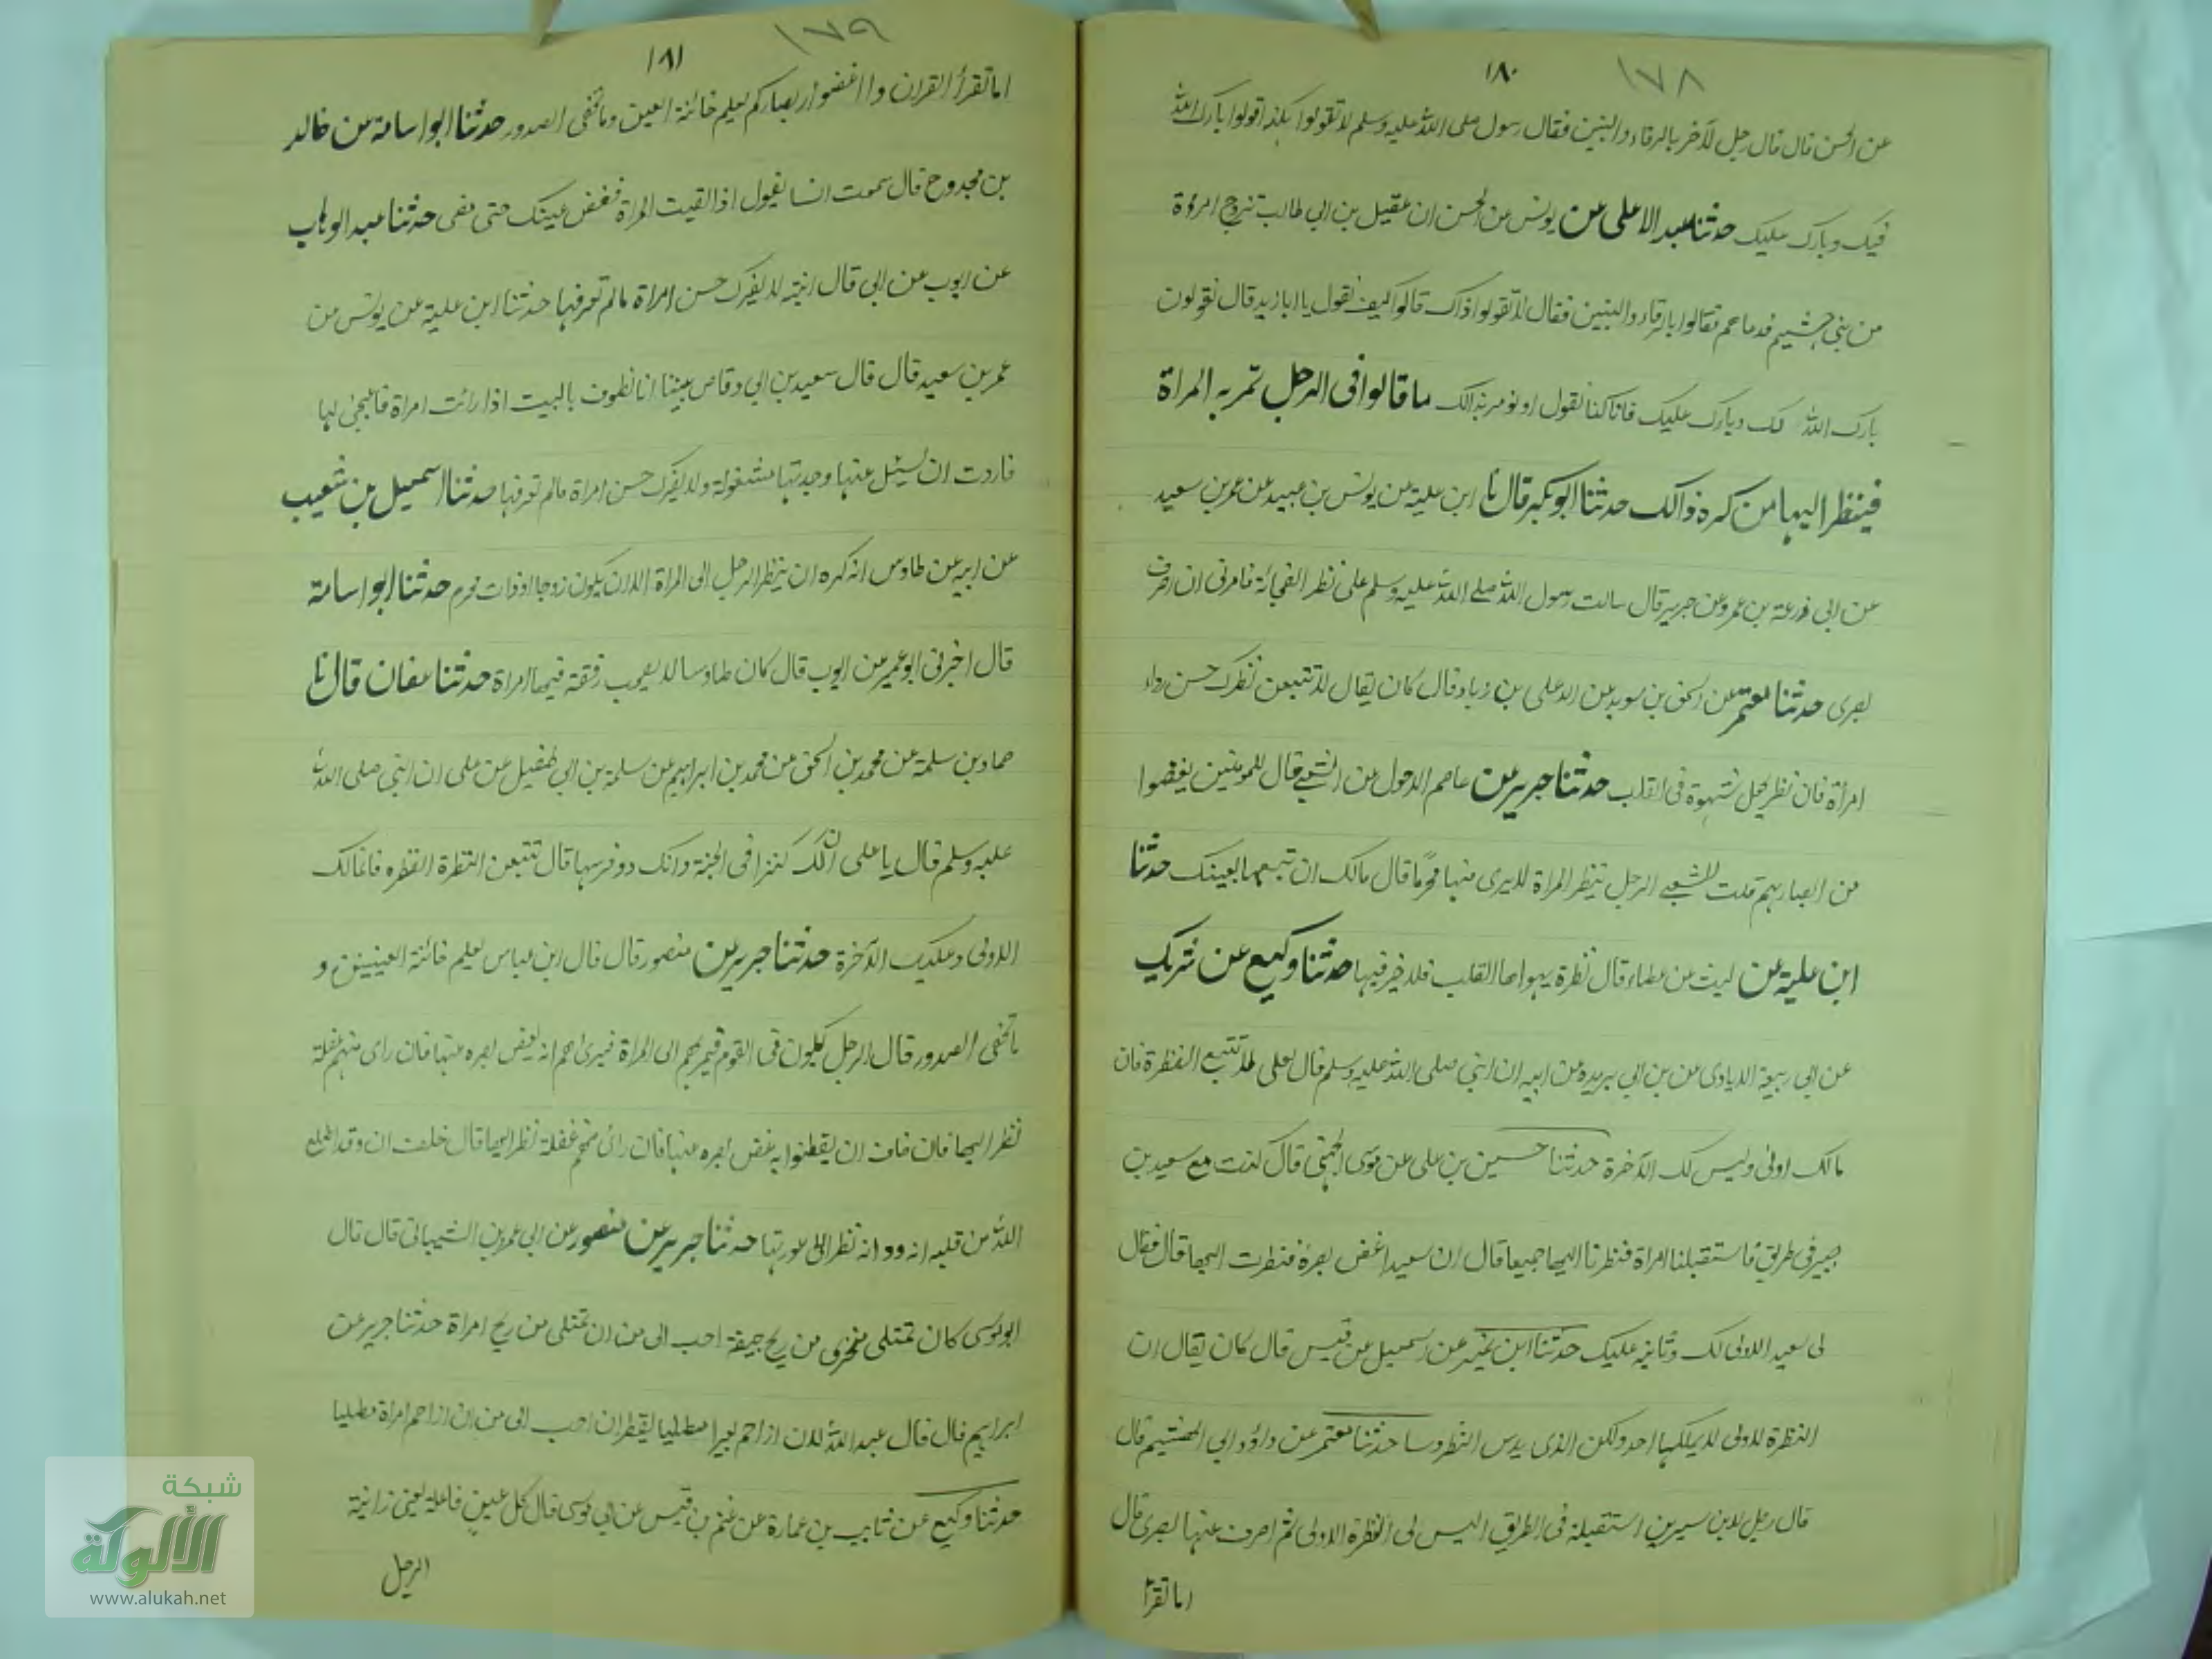 ١٧٨
١٨٠
عن الحسن قال قال رجل لآخر بالرفاء والبنين فقال رسول صلى الله عليه وسلم لا تقولوا هكذا قولوا بارك الله
فيك وبارك عليك حدثنا عبد الاعلى عن يونس عن الحسن ان عقيل بن ابي طالب تزوج امرؤة
من بنى جشيم فدعاهم فقالوا بالرفاء والبنين فقال لا تقولوا ذاك قالوا كيف نقول يا ابا زيد قال تقولون
بارك الله لك وبارك عليك فانا كنا نقول او نومر بذالك ما قالوا فى الرجل تمر به المراة
فينظر اليها من كره ذالك حدثنا ابو بكر قال نا ابن علية عن يونس بن عبيد عن عمر بن سعيد
عن ابى زرعة بن عمرو عن جرير قال سالت رسول الله صلى الله عليه وسلم على نظر الفجائة فامرنى ان اصرف
بصرى حدثنا معتمر عن اسحق بن سويد عن العلى بن زياد قال كان يقال لا تتبعن نظرك حسن رداء
امرأة فان نظر يجعل شهوة فى القلب حدثنا جرير عن عاصم الاحول عن الشعبى قال للمومنين يغضوا
من ابصارهم قلت للشعبى الرجل ينظر المراة لا يرى منها محرما قال مالك ان تتبعها بعينك حدثنا
ابن علية عن ليث عن عطاء قال نظرة يهواها القلب فلا خير فيها حدثنا وكيع عن شريك
عن ابى ربيعة الايادى عن بن ابى بريده عن ابيه ان النبى صلى الله عليه وسلم قال لعلى لا تتبع النظرة فان
مالك اولى وليس لك الآخرة حدثنا حسين بن على عن موسى الجهنى قال كنت مع سعيد بن
جبير فى طريق فاستقبلنا امراة فنظرنا اليها جميعا قال ان سعيدا غض بصره فنظرت اليها قال فقال
لى سعيد الاولى لك وثانيه عليك حدثنا ابن نمير عن اسمعيل عن قيس قال كان يقال ان
النظرة الاولى لا يملكها احد ولكن الذى يدس النظر وسا حدثنا معتمر عن داؤد ابى الهشيم قال
قال رجل لابن سيرين استقبلة فى الطريق اليس لى النظرة الاولى ثم اصرف عنها بصرى قال
اما تقرأ
١٧٩
١٨١
اما تقرأ القران وا اغضوا ابصاركم يعلم خائنة العين وما تخفى الصدور حدثنا ابو اسامة من خالد
بن مجدوح قال سمعت انسا يقول اذا لقيت المراة فغض عينك حتى تمضى حدثنا عبد الوهاب
عن ايوب عن ابى قال لا يغرك حسن امراة ما لم تعرفها حدثنا ابن علية عن يونس من
عمر بن سعيد قال قال سعيد بن ابى وقاص بينا انا نطوف بالبيت اذا رائت امراة فاعجبنى لها
فاردت ان يسئل عنها وجدتها مشغولة ولا يغرك حسن امراة ما لم تعرفها حدثنا اسمعيل بن شعيب
عن ابيه عن طاوس انه كره ان ينظر الرجل الى المراة الا ان يكون زوجا او ذات محرم حدثنا ابو اسامة
قال اخبرنى ابو عمير عن ايوب قال كان طاوسا لا يصحب رفقته فيها امراة حدثنا عفان قال نا
حماد بن سلمة عن محمد بن اسحق عن محمد بن ابراهيم عن سلمة بن ابى طفيل عن على ان النبى صلى الله
عليه وسلم قال يا على ان لك كنزا فى الجنة وانك ذو قرنيها قال تتبعن النظرة النظره فانما لك
الاولى وعليك الآخرة حدثنا جرير عن منصور قال قال ابن عباس يعلم خائنة العينين و
ما تخفى الصدور قال الرجل يكون فى القوم فيمر بهم الى المراة فيرى احم انه يغض بصره عنها فان راى منهم غفلة
نظر اليها فان خاف ان يفطنوا به غض بصره عنها فان رأى منهم غفلة نظر اليها قال خلف ان وقد اطلع
الله من قلبه انه ود انه نظر الى عورتها حدثنا جرير عن منصور عن ابى عمر بن الشيبانى قال قال
ابو موسى كان تمتلى منخرى من ريح جيفة احب الى من ان تمتلى من ريح امراة حدثنا جرير عن
ابراهيم قال قال عبد الله لان ازاحم بعيرا مطليا بقطران احب الى من ان ازاحم امراة مطليا
حدثنا وكيع عن ثابب بن عمارة عن غنم بن قيس عن ابى موسى قال كل عين فاعلة يعنى زانية
الرجل
شبكة
الألوكة
www.alukah.net